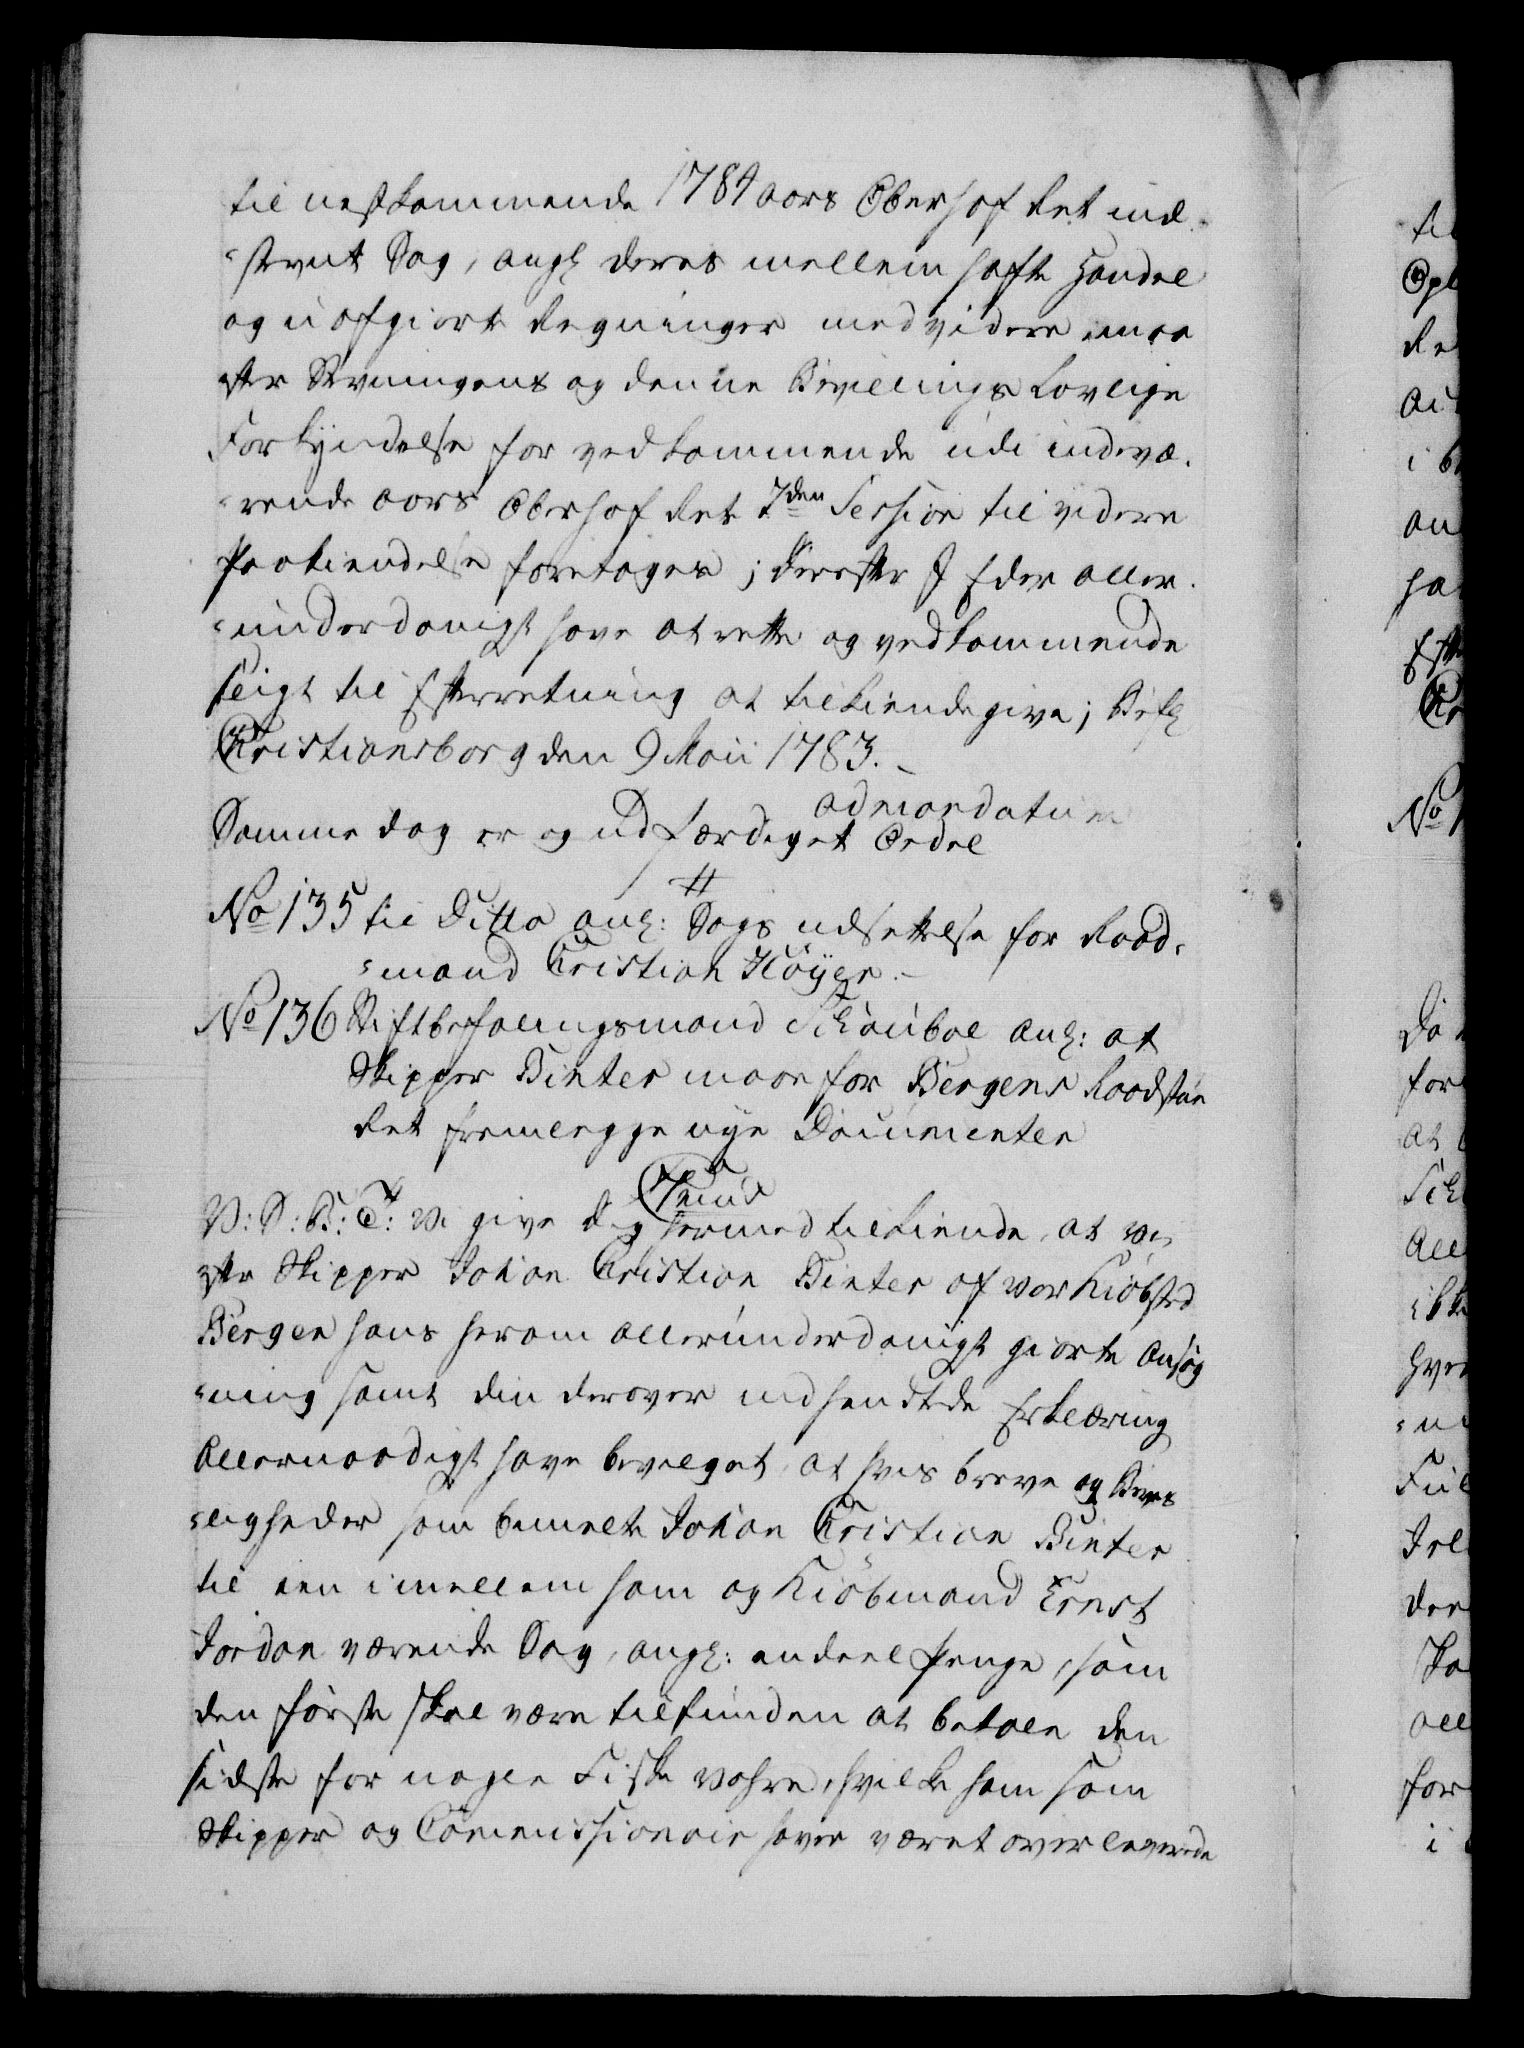 til nestkommende 1784 aars Oberhof Ret ind-
-stevnt Sag, angl deres mellem hafte Handel
og uafgiorte Regninger med videre, maa
efter Stevningens og denne Bevillings Lovlige
Forkyndelse for vedkommende udi indevæ-
-rende aars Oberhof Ret 7den Session til videre
Paakiendelse foretages; Derefter I Eder aller-
-underdanigst have at rette og vedkommende
sligt til Efterretning at tilkiendegive; Befl
Christiansborg den 9 Maii 1783.
admandatum
Samme dag er og udfærdiget Ordre
No 135 til Ditto anl: Sags udsettelse for Raad-
-mand Cristian Höyer.
No 136 Stiftbefalingsmand Schouboe anl: at
Skipper Binter maae for Bergens Raadstue
Ret fremlegge nye Documenter
V: S: B: T: Vi give dig hermed tilkiende, at vi
efter Skipper Johan Cristian Binter af vor Kiöbsted
Bergen hans herom allerunderdanigst giorte Ansög
-ning samt din derover indsendte Erklæring
Allernaadigst have bevilget, at hvis breve og Beviis
-ligheder som bemelte Johan Cristian Binter
til een imellem ham og Kiöbmand Ernst
Jordan værende Sag, angl: endeel Penge, som
den förste skal være tilfunden at betale den
sidste for nogle Fiske vahre, hvilke ham som
Skipper og Commissionair haver været overleverede